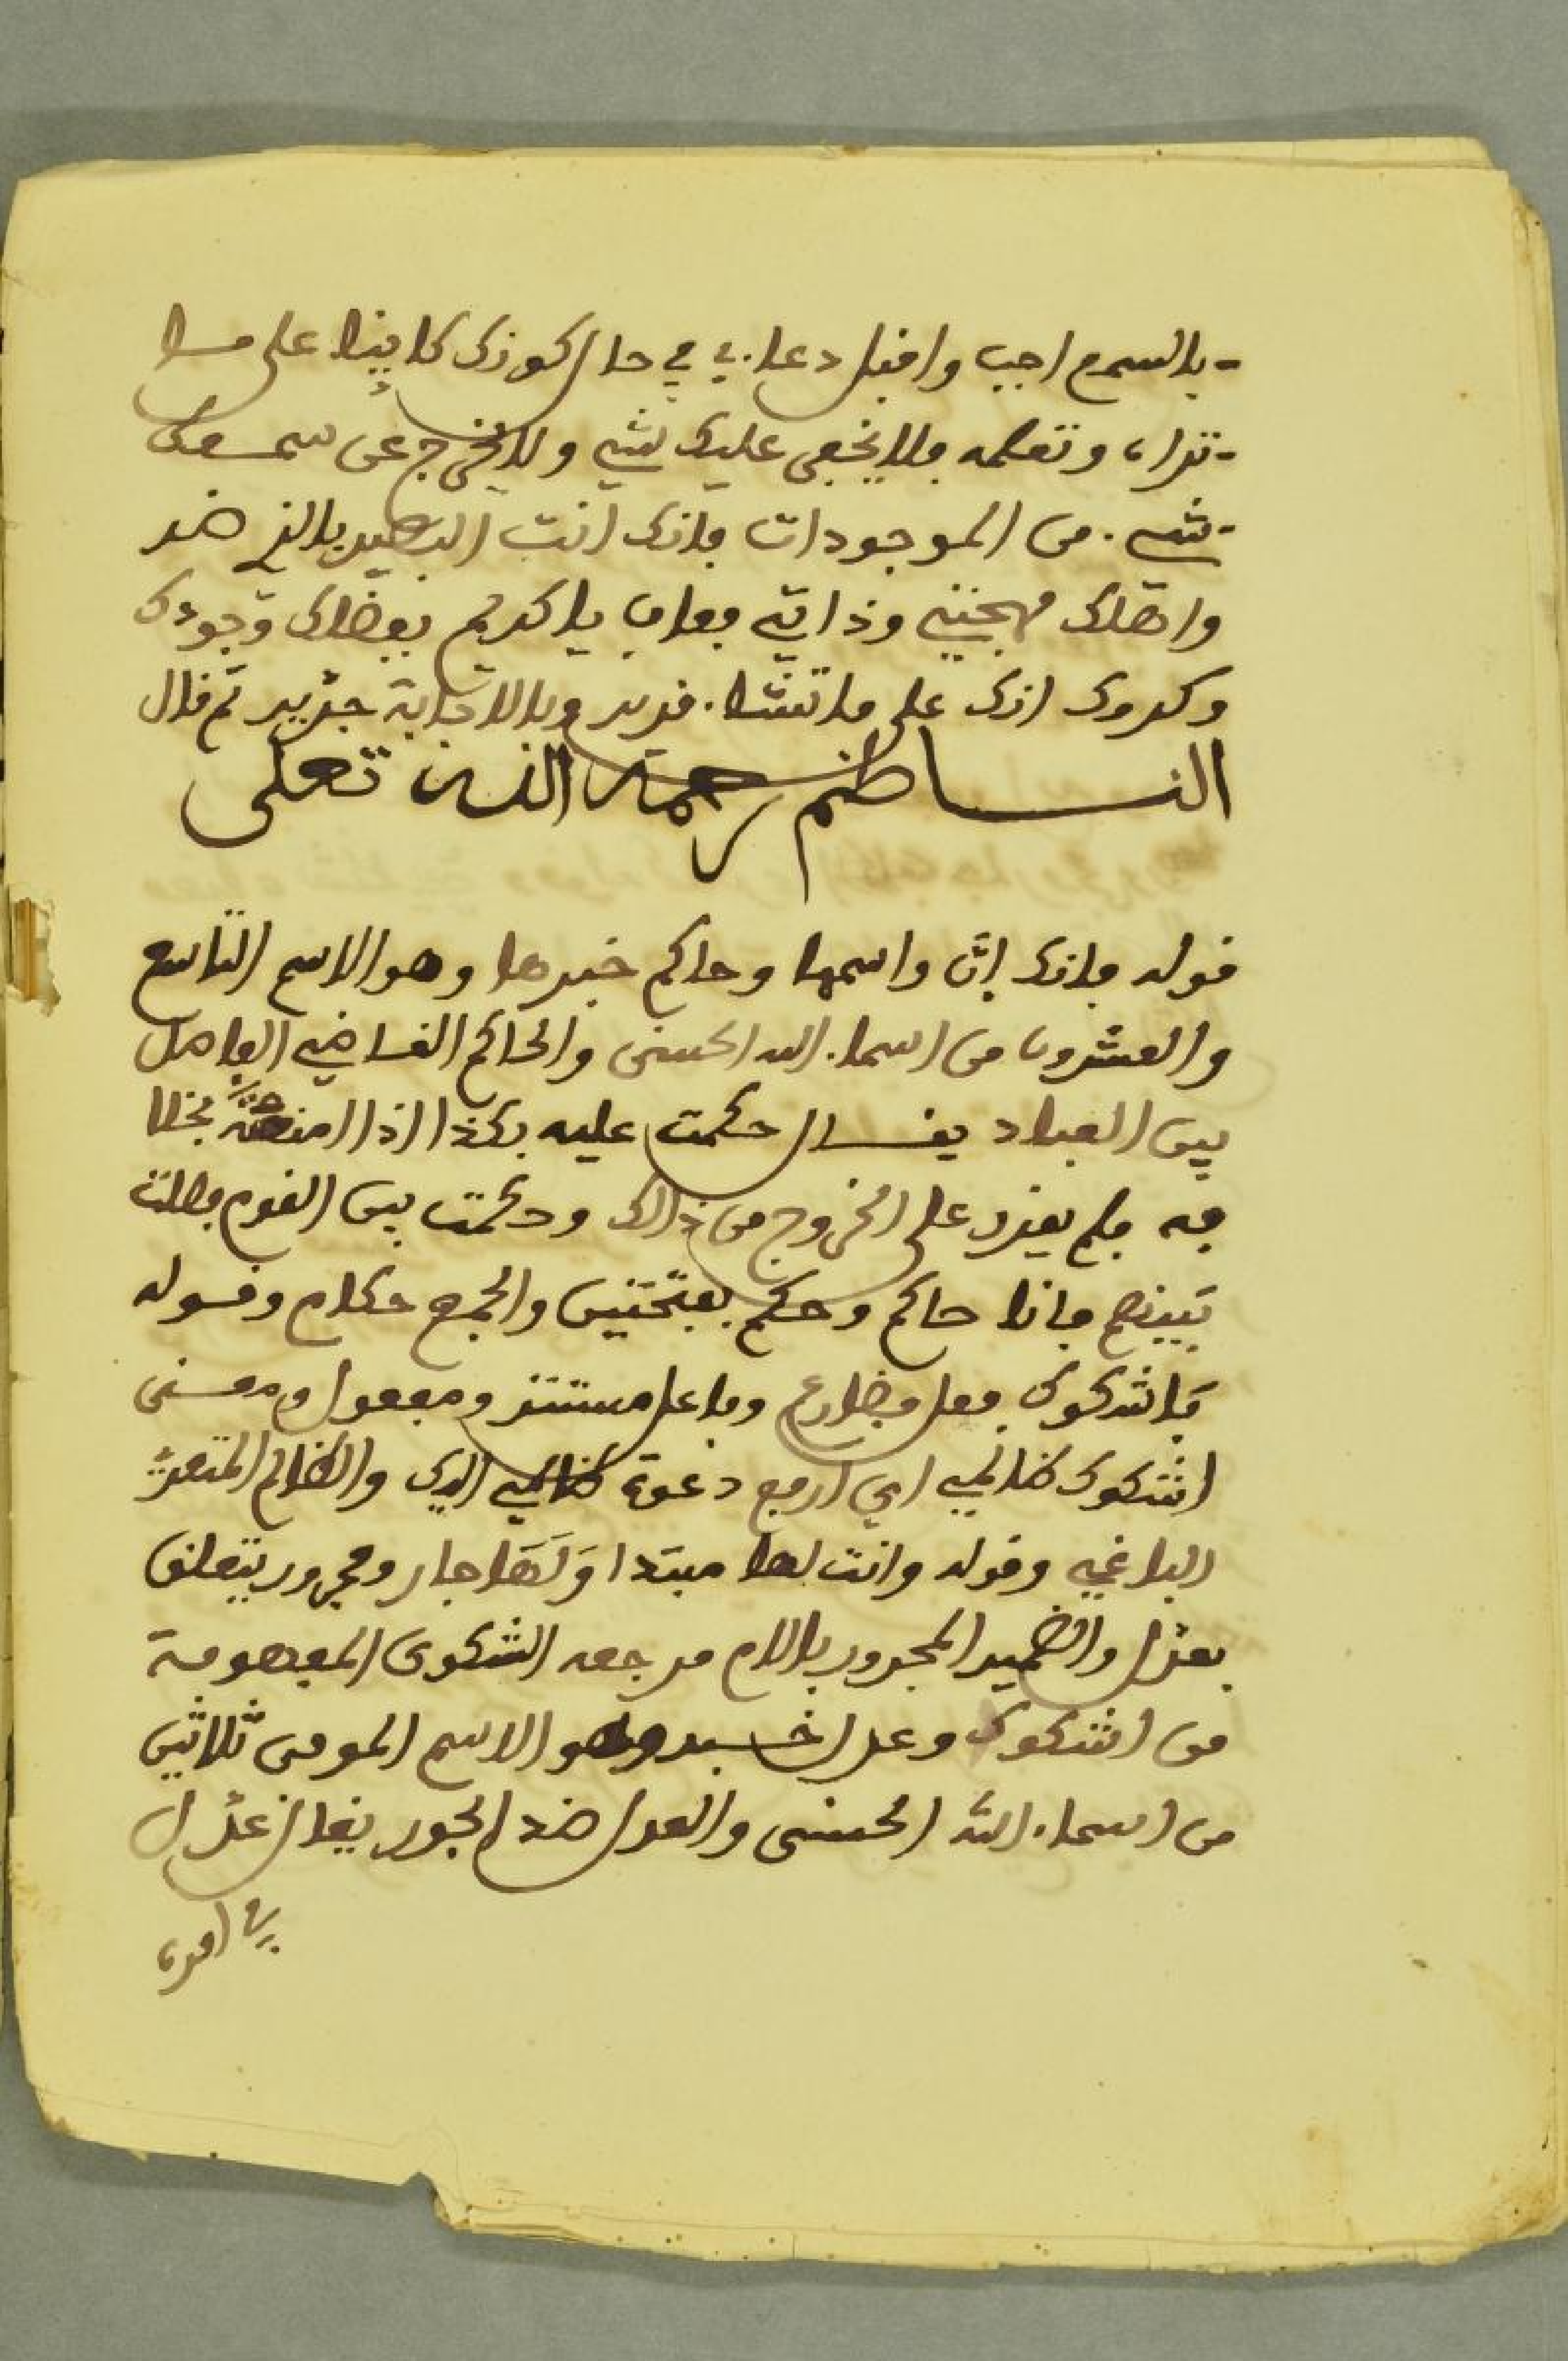 يا لسمع اجب واقبل دعاءي في حال كونك كاينا على ما
تراه وتعلمه فلا يخفى عليك شيء ولا يخرج عن سمعك
شيء من الموجودات فانك انت البصير بالذي ضر
واهلك مهجتي وذاتي فعاف يا كريم بفضلك وجودك
وكرمك انك على ما تشاء قدير وبالاجابة جدير ثم قال
الناظم رحمه الله تعلى
قوله فانك إنّ واسمها وحاكم خبرها وهو الاسم التاسع
والعشرون من اسماء الله الحسنى والحاكم القاضي الفاصل
بين العباد يقال حكمت عليه بكذا اذا منعته بخلا
فه فلم يقدر على الخروج من ذالك وحكمت بين القوم فصلت
بينهم فانا حاكم وحكم بفتحتين والجمع حكام وقوله
فاشكوى فعل مضارع وفاعل مستتر ومفعول ومعنى
اشكوى ظالمي اي ارفع دعوة ظالمي اليك والظالم المتعدّ
الباغي وقوله وانت لها مبتدا وَلَهَا جار ومجرور يتعلق
بعدل والضمير المجرور باللام مرجعه الشكوى المفهومة
من اشكوى وعدل خبر وهو الاسم الموفى ثلاثين
من اسماء الله الحسنى والعدل ضد الجور يقال عدل
في امره